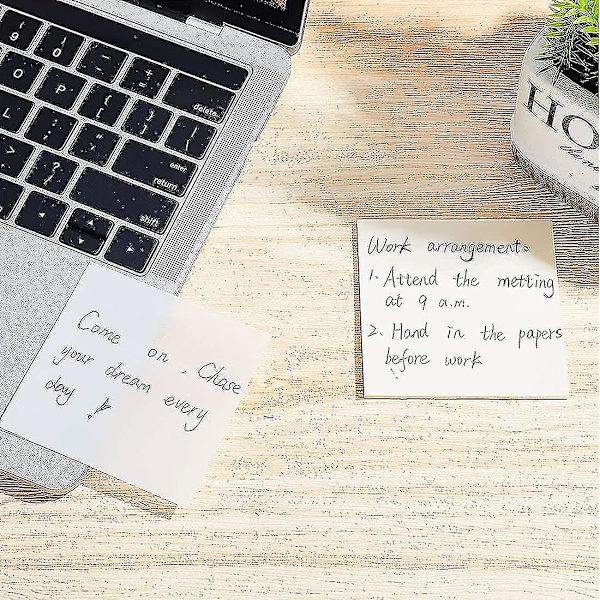 ( 9
) 0
_ -
+ =
delete
O
P
{ [
} ]
| \
enter
return
L
: ;
" '
shift
> .
? /
HO
Come on, Chase
your dream every
day !
Work arrangement:
1. Attend the metting
at 9 a.m.
2. Hand in the papers
before work